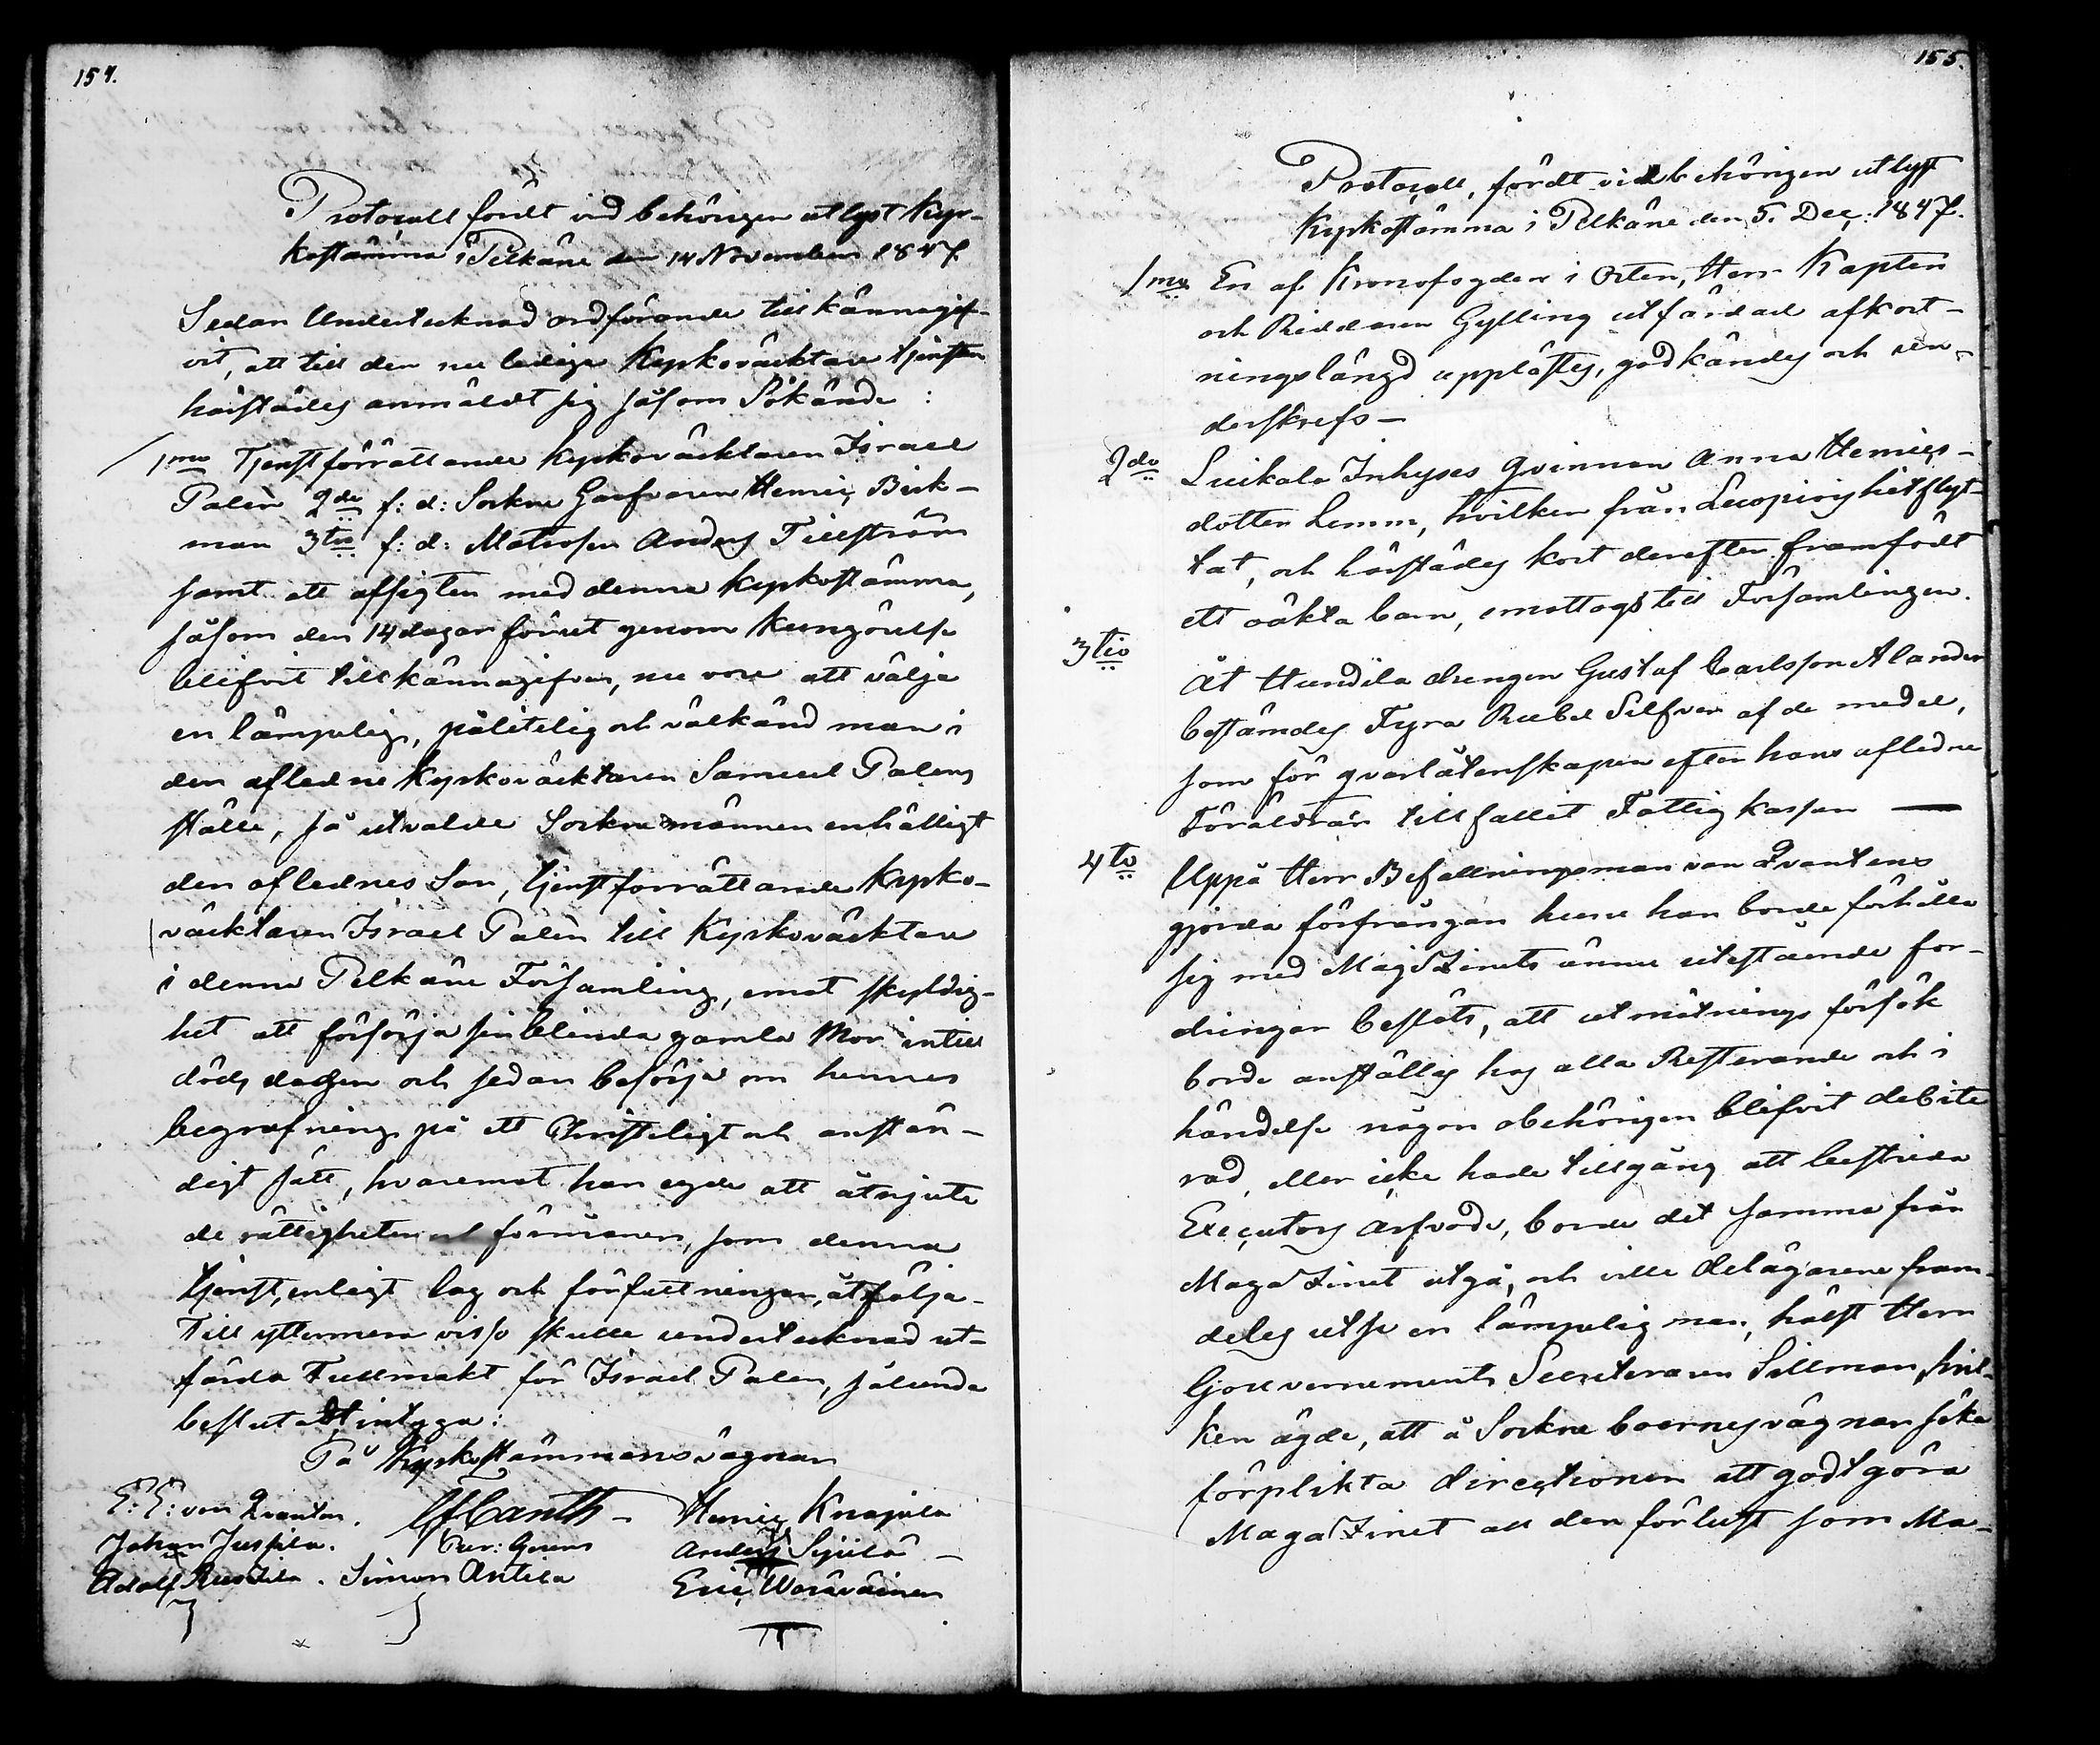 154.
Protocoll fördt vid behörigen utlyst Kyr-
kostämma i Pelkäne den 14 November 1847.
Sedan Undertecknad ordförande tillkännagif-
vit, att till den nu lediga Kyrkoväcktare tjensten
härstädes anmäldt sig såsom Sökande:
1mo Tjenstförrättande kyrkoväcktaren Israel
Palèn 2do f: d: Sockne Garfvaren Henric Birk-
man 3tio f: d: Matrosen Anders Tillström
samt att afsigten med denna kyrkostämma,
såsom den 14 dagar förut genom Kungörelse
blifvit tillkännagifven, nu vore att välja
en lämpelig, pålitelig och välkänd man i
den aflednе Kyrkoväcktaren Samuel Palens
ställe, så utvalde Sockne männen enhälligt
den aflednes Son, tjenstförrättande Kyrko-
väcktaren Israel Palèn till Kyrkoväcktare
i denna Pelkäne Församling, emot skyldig-
het att försörja sin blinda gamla Mor intill
döds dagen och sedan besörja om hennes
begrafning på ett Christeligt och anstän-
digt sätt, hvaremot han egde att åtnjuta
de rättigheter och förmåner, som denna
tjenst, enligt lag och författningar, åtfölja.
Till yttermera visso skulle undertecknad ut-
färda Fullmakt för Israel Palen, sålunda
beslutadt intyga:
På Kyrkostämmans vägnar
E: E: von Qvanten. Canth - Henric Knapila
Johan Jussila. Cur: Gerens Anders Sipilä -
Adolf Ruodila. Simon Antila Eric Woräväinen
155.
Protocoll, fördt vid behörigen utlyst
Kyrkostämma i Pelkäne den 5. Dec: 1847.
1mo En af Kronofogden i Orten, Herr Kapten
och Riddaren Gylling utfärdad afkort-
ningslängd upplästes, godkändes och un-
derskrefs -
2do Luikala Inhyses Qvinnan Anna Henrics-
dotter Lemm, hvilken från Leopois hitflyt-
tat, och härstädes kort derefter framfödt
ett oäkta barn, emottogs till Församlingen.
3tio Åt Hundila drengen Gustaf Carlsson Alander
bestämdes Fyra Rubel Silfver af de medel,
som för qvarlåtenskapen efter hans aflednе
Föräldrar tillfallit Fattig kassan —
4to Uppå Herr Befallningsman von Qvantens
gjorda förfrågan huru han borde förhålla
sig med Magazinets ännu utestående for-
dringar beslöts, att utmätnings försök
borde anställas hos alla Resterande och i
händelse någon obehörigen blifvit debite
rad, eller icke hade tillgång att bestrida
Executors arfvode, borde det samma från
Magazinet utgå, och ville delägarene fram-
deles utse en lämpelig man, hälst Herr
Gouvernements Secreteraren Sillman, hvil-
ken ägde, att å Sockne boernes vägnar söka
förplikta directionen att godtgöra
Magazinet all den förlust som Ma-